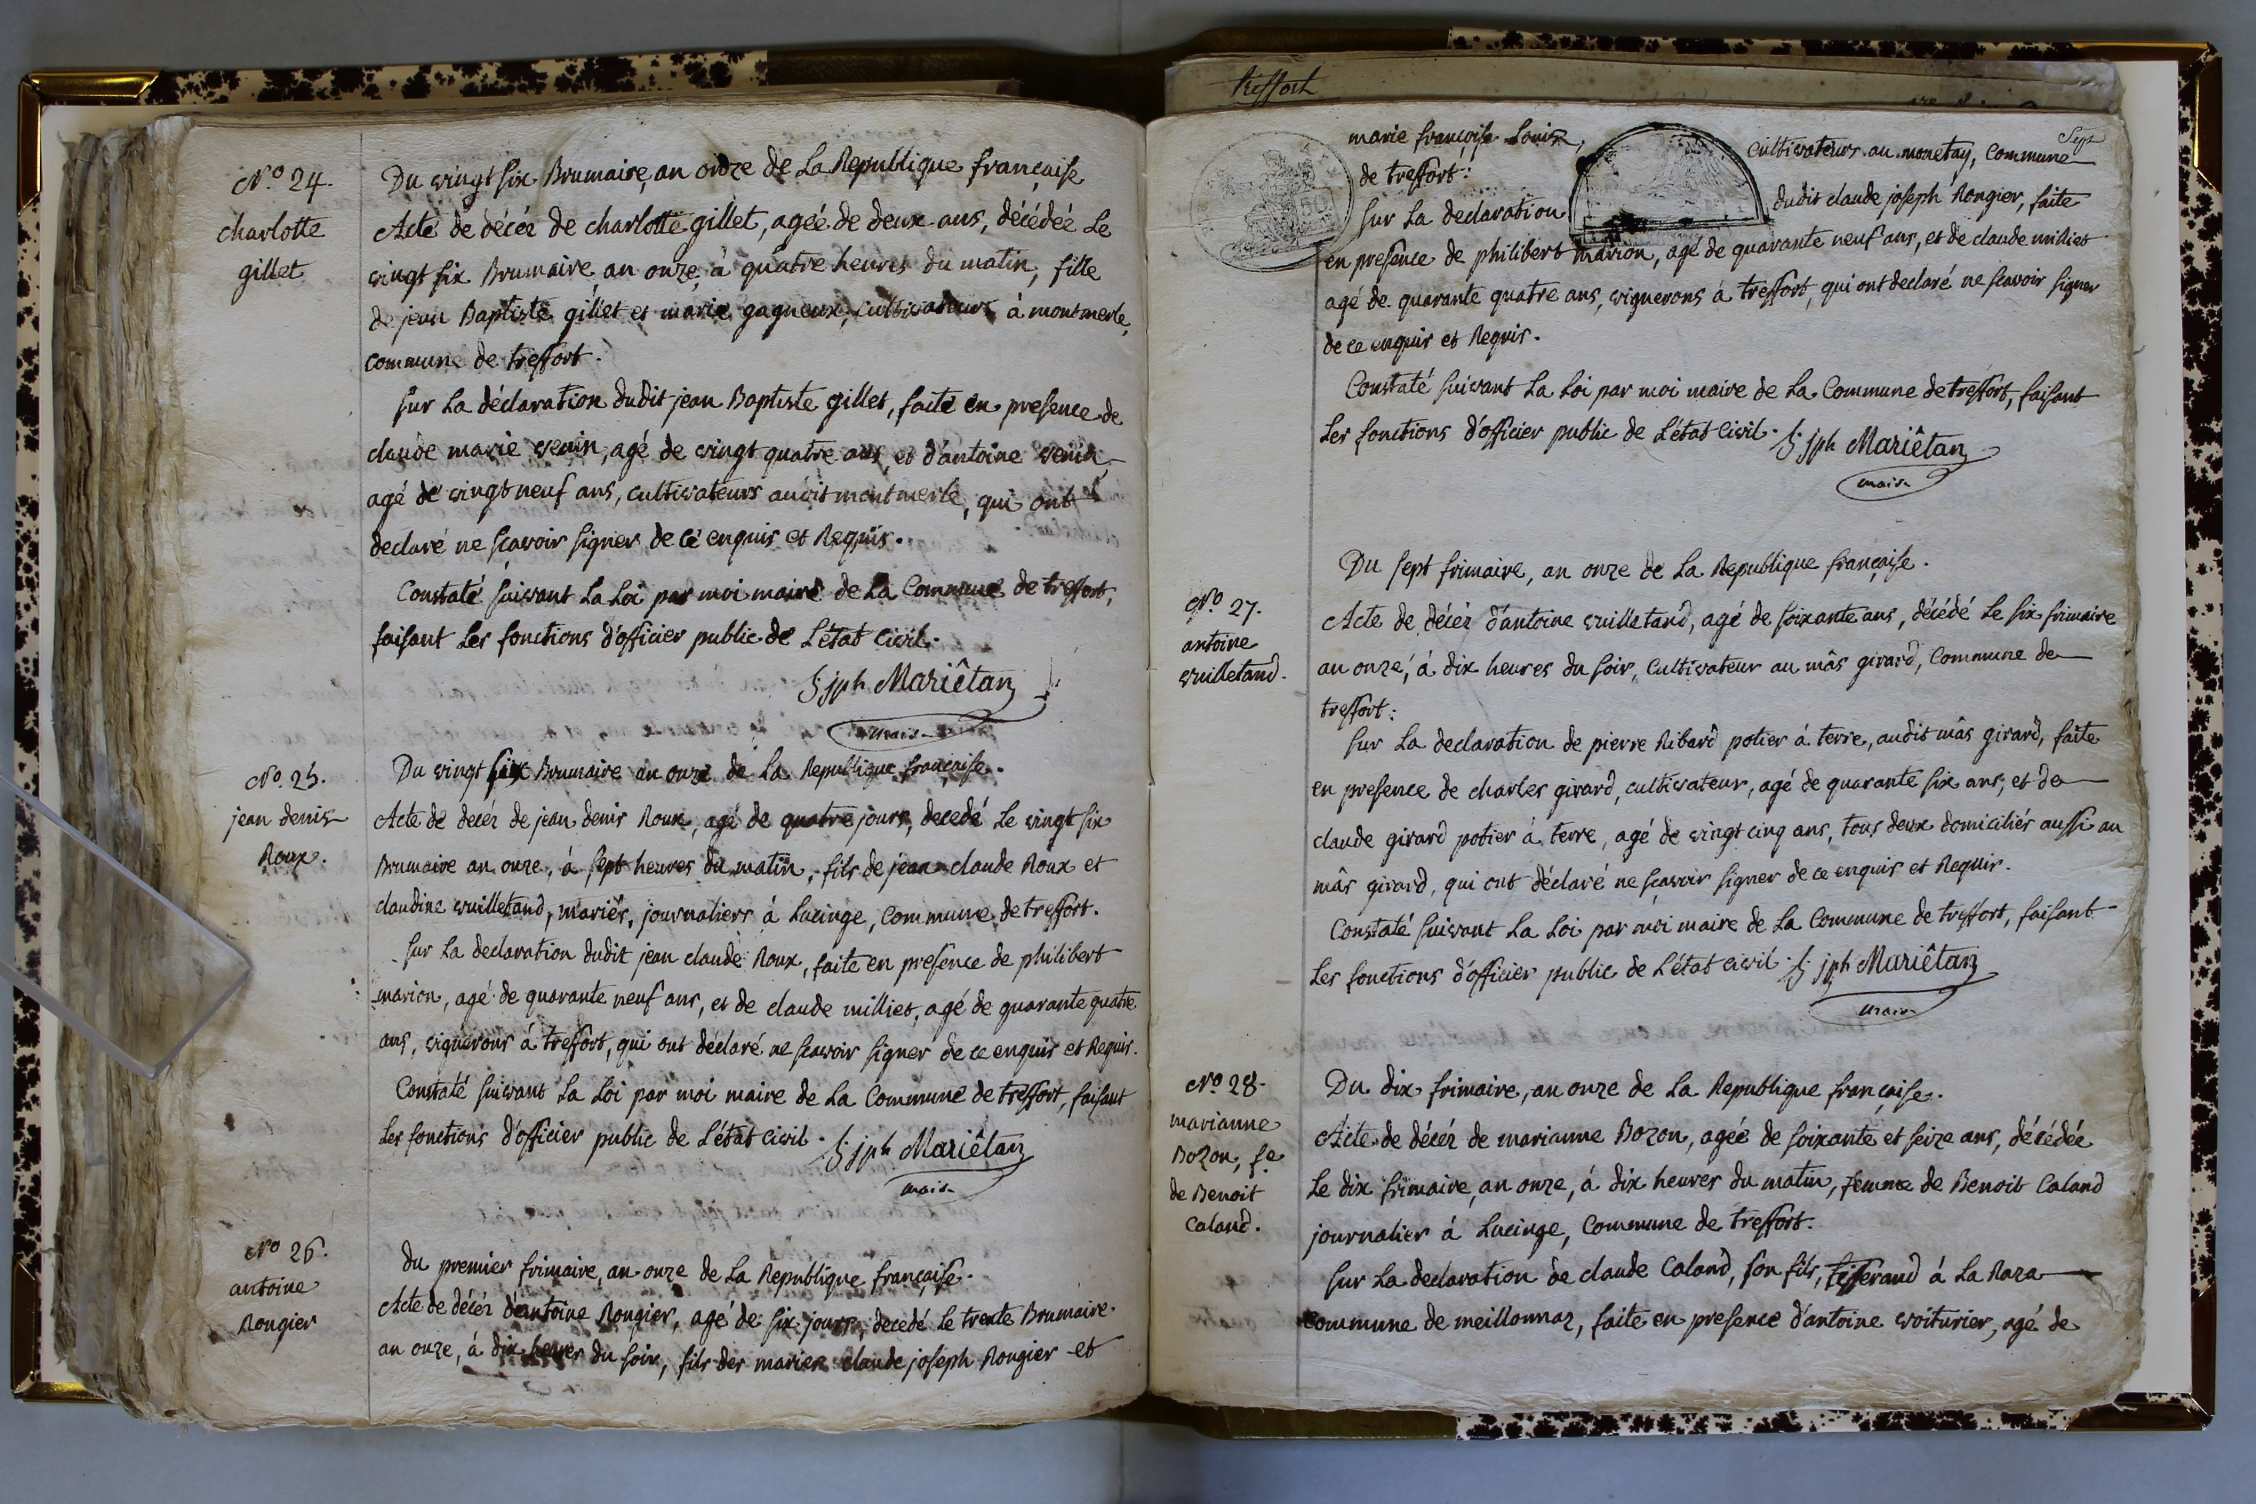 N.o 24.
charlotte
gillet
Du vingt six Brumaire, an onze de La Republique française
Acte de décéz de charlotte gillet, agée de deux ans, décédée Le
vingt six Brumaire, an onze, à quatre heures du matin, fille
de jean Baptiste gillet et marie gagneux, cultivateurs à montmerle,
commune de treffort.
sur La déclaration dudit jean Baptiste gillet, faite en presence de
claude marie venin, agé de vingt quatre ans, et d'antoine venin,
agé de vingt neuf ans, cultivateurs audit montmerle, qui ont
declaré ne sçavoir signer de ce enquis et Requis.
Constaté suivant La Loi par moi maire de La Commune de treffort,
faisant Les fonctions d'officier public de L'état Civil.
jph Mariêtan
maire
N.o 25.
jean denis
Roux.
Du vingt six Brumaire an onze de La Republique française.
Acte de decéz de jean denis Roux, agé de quatre jours, decedé Le vingt six
Brumaire an onze, à sept heures du matin, fils de jean claude Roux et
claudine vuilletand, mariés, journaliers à Lucinge, Commune de treffort.
sur La declaration dudit jean claude Roux, faite en presence de philibert
marion, agé de quarante neuf ans, et de claude milliet, agé de quarante quatre
ans, vignerons à treffort, qui ont déclaré ne sçavoir signer de ce enquis et Requis.
Constaté suivant La Loi par moi maire de La Commune de treffort, faisant
Les fonctions d'officier public de L'état civil.
jph Mariêtan
maire
N.o 26.
antoine
Rougier
Du premier frimaire, an onze de La Republique française.
Acte de décéz d'antoine Rougier, agé de six jours, decedé Le trente Brumaire
an onze, à dix heures du soir, fils des mariés claude joseph Rougier et
treffort
Sept
marie françoise Louis, cultivateurs au monetay, Commune
de treffort:
sur La declaration dudit claude joseph Rougier, faite
en presence de philibert marion, agé de quarante neuf ans, et de claude milliet
agé de quarante quatre ans, vignerons à treffort, qui ont declaré ne sçavoir signer
de ce enquis et Requis.
Constaté suivant La Loi par moi maire de La Commune de treffort, faisant
Les fonctions d'officier public de L'état Civil.
jph Mariêtan
maire
N.o 27.
antoine
vuilletand.
Du sept frimaire, an onze de La Republique française.
Acte de décéz d'antoine vuilletand, agé de soixante ans, décédé Le six frimaire
an onze, à dix heures du soir, Cultivateur au mâs girard, Commune de
treffort:
sur La declaration de pierre Ribard potier à terre, audit mâs girard, faite
en presence de charles girard, cultivateur, agé de quarante six ans, et de
claude girard potier à terre, agé de vingt cinq ans, tous deux domiciliés aussi au
mâs girard, qui ont déclaré ne sçavoir signer de ce enquis et Requis.
Constaté suivant La Loi par moi maire de La Commune de treffort, faisant
Les fonctions d'officier public de L'état civil.
jph Mariêtan
maire
N.o 28.
marianne
Bozon, fe
de Benoit
Caland.
Du dix frimaire, an onze de La Republique française.
Acte de décéz de marianne Bozon, agée de soixante et seize ans, décédée
Le dix frimaire, an onze, à dix heures du matin, femme de Benoit Caland
journalier à Lucinge, Commune de treffort.
sur La declaration de claude Caland, son fils, tisserand à La Raza
commune de meillonnaz, faite en presence d'antoine voiturier, agé de